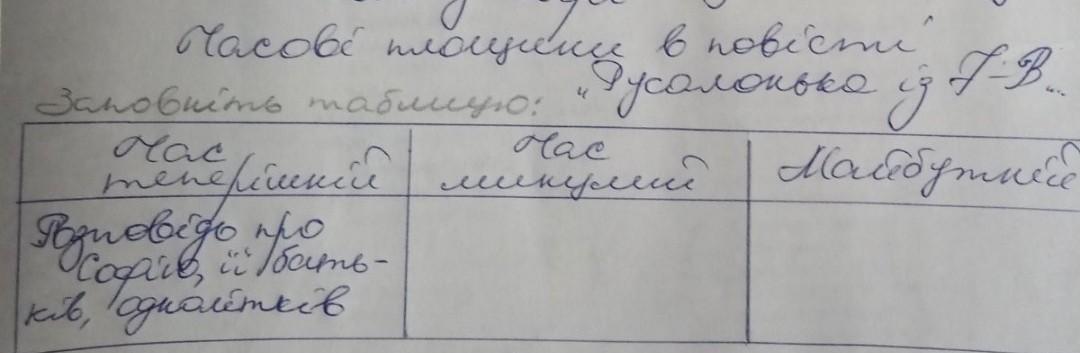 Часові площини в повісті
„Русалонька із 7-В...
Заповніть таблицю:
Час теперішній
Час минулий
Майбутній
Розповідь про
Софію, її бать-
ків, однолітків